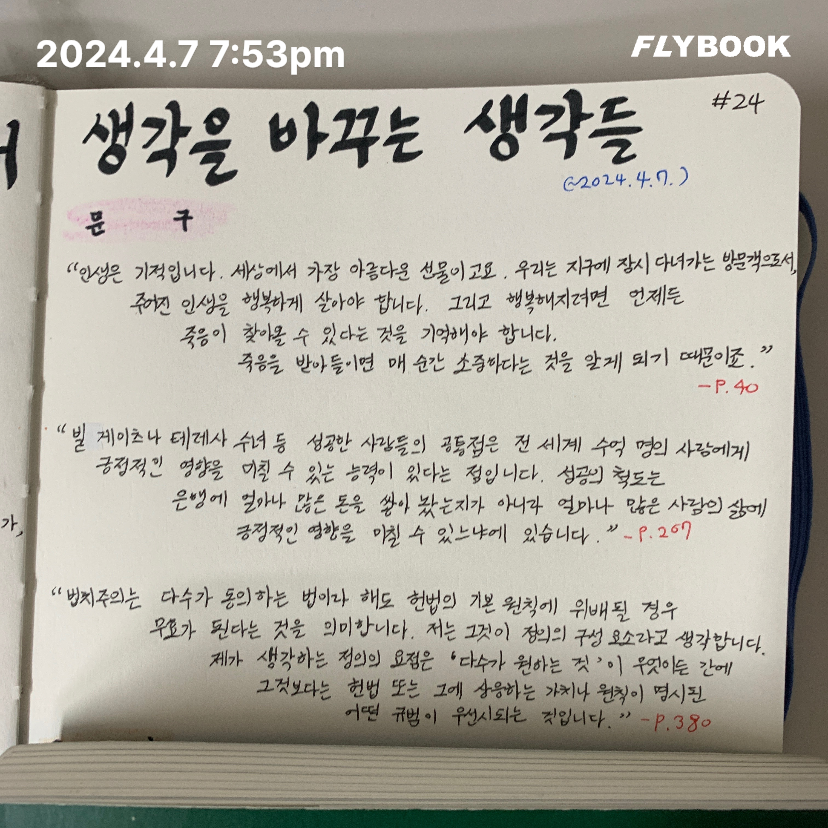 2024.4.7 7:53pm
FLYBOOK
#24
생각을 바꾸는 생각들
(~2024.4.7.)
문 구
“인생은 기적입니다. 세상에서 가장 아름다운 선물이고요. 우리는 지구에 잠시 다녀가는 방문객으로서,
주어진 인생을 행복하게 살아야 합니다. 그리고 행복해지려면 언제든
죽음이 찾아올 수 있다는 것을 기억해야 합니다.
죽음을 받아들이면 매 순간 소중하다는 것을 알게 되기 때문이죠.”
-P.40
“빌 게이츠나 테레사 수녀 등 성공한 사람들의 공통점은 전 세계 수억 명의 사람에게
긍정적인 영향을 미칠 수 있는 능력이 있다는 점입니다. 성공의 척도는
은행에 얼마나 많은 돈을 쌓아 놨는지가 아니라 얼마나 많은 사람의 삶에
긍정적인 영향을 미칠 수 있느냐에 있습니다.” -P.267
“법치주의는 다수가 동의하는 법이라 해도 헌법의 기본 원칙에 위배될 경우
무효가 된다는 것을 의미합니다. 저는 그것이 정의의 구성 요소라고 생각합니다.
제가 생각하는 정의의 요점은 ‘다수가 원하는 것’이 무엇이든 간에
그것보다는 헌법 또는 그에 상응하는 가치나 원칙이 명시된
어떤 규범이 우선시되는 것입니다.” -P.380
가,